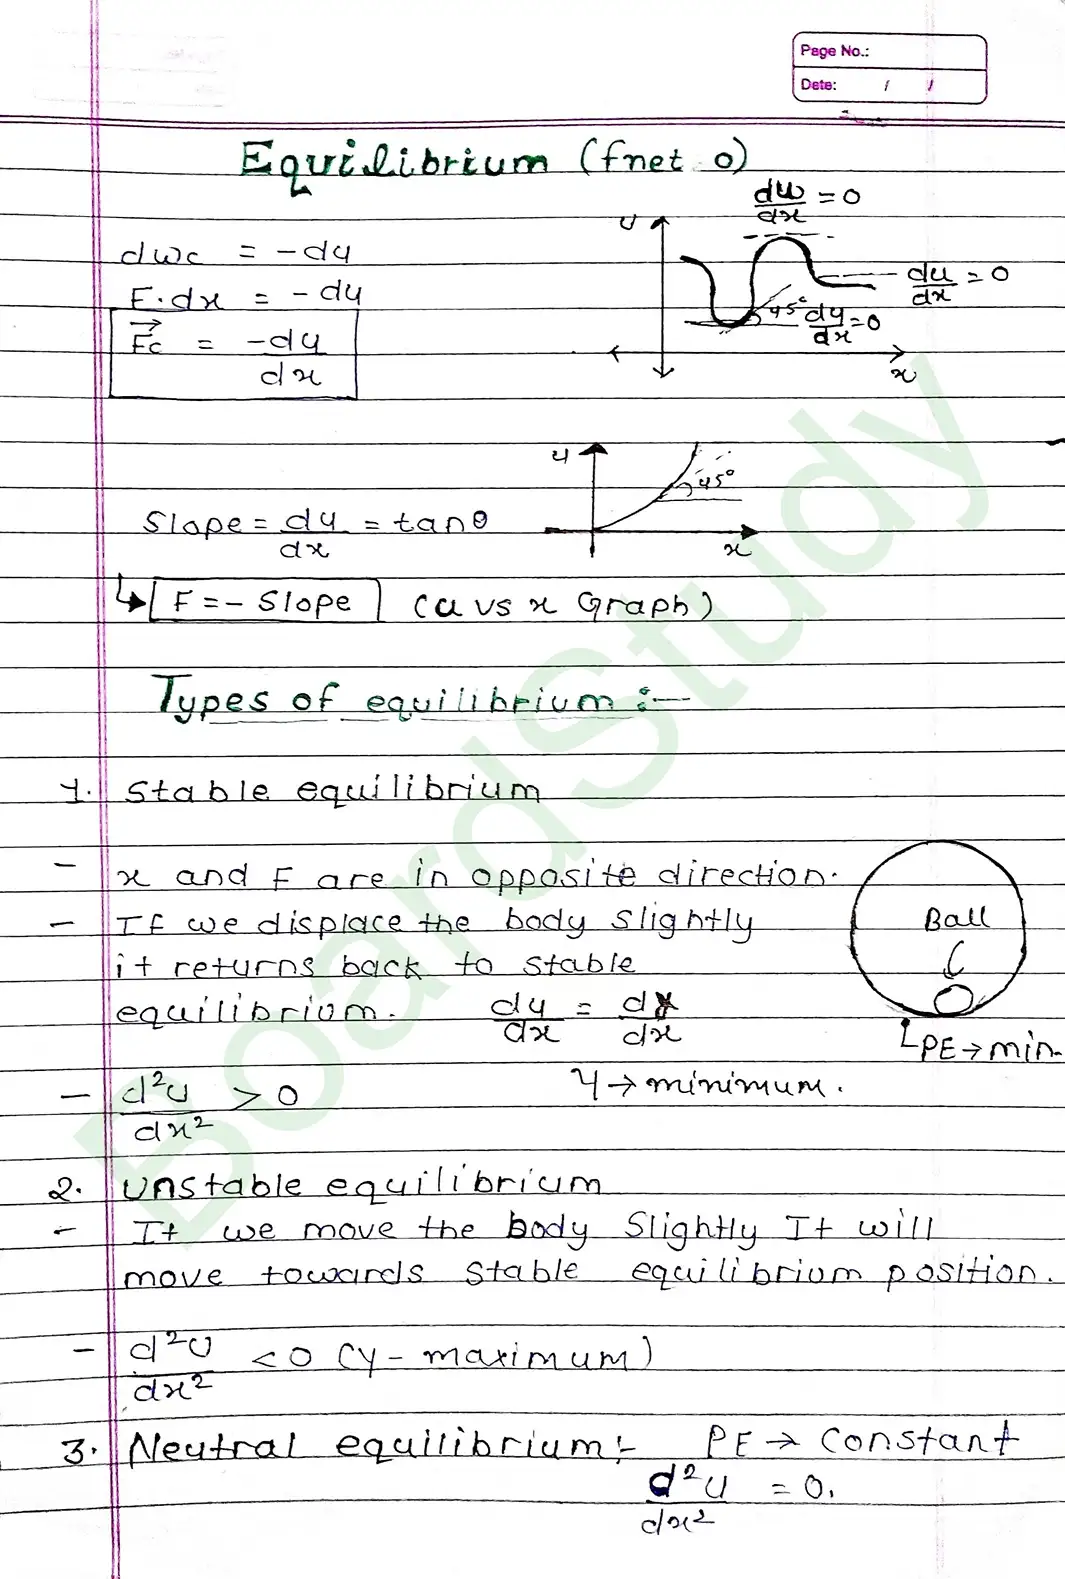 Page No.:
Date: / /
Equilibrium (fnet 0)
dwc = -du
F.dx = -du
Fc = -du/dx
U
du/dx = 0
du/dx = 0
45° du/dx = 0
x
u
45°
x
Slope = du/dx = tanθ
F = - Slope (u vs x Graph)
Types of equilibrium :-
1. Stable equilibrium
- x and F are in opposite direction.
- If we displace the body slightly
it returns back to stable
equilibrium. du/dx = dy/dx
Ball
PE → min.
- d²U/dx² > 0
y → minimum.
2. Unstable equilibrium
- It we move the body Slightly It will
move towards stable equilibrium position.
- d²U/dx² < 0 (y - maximum)
3. Neutral equilibrium :- PE → Constant
d²U/dx² = 0.
BoardStudy